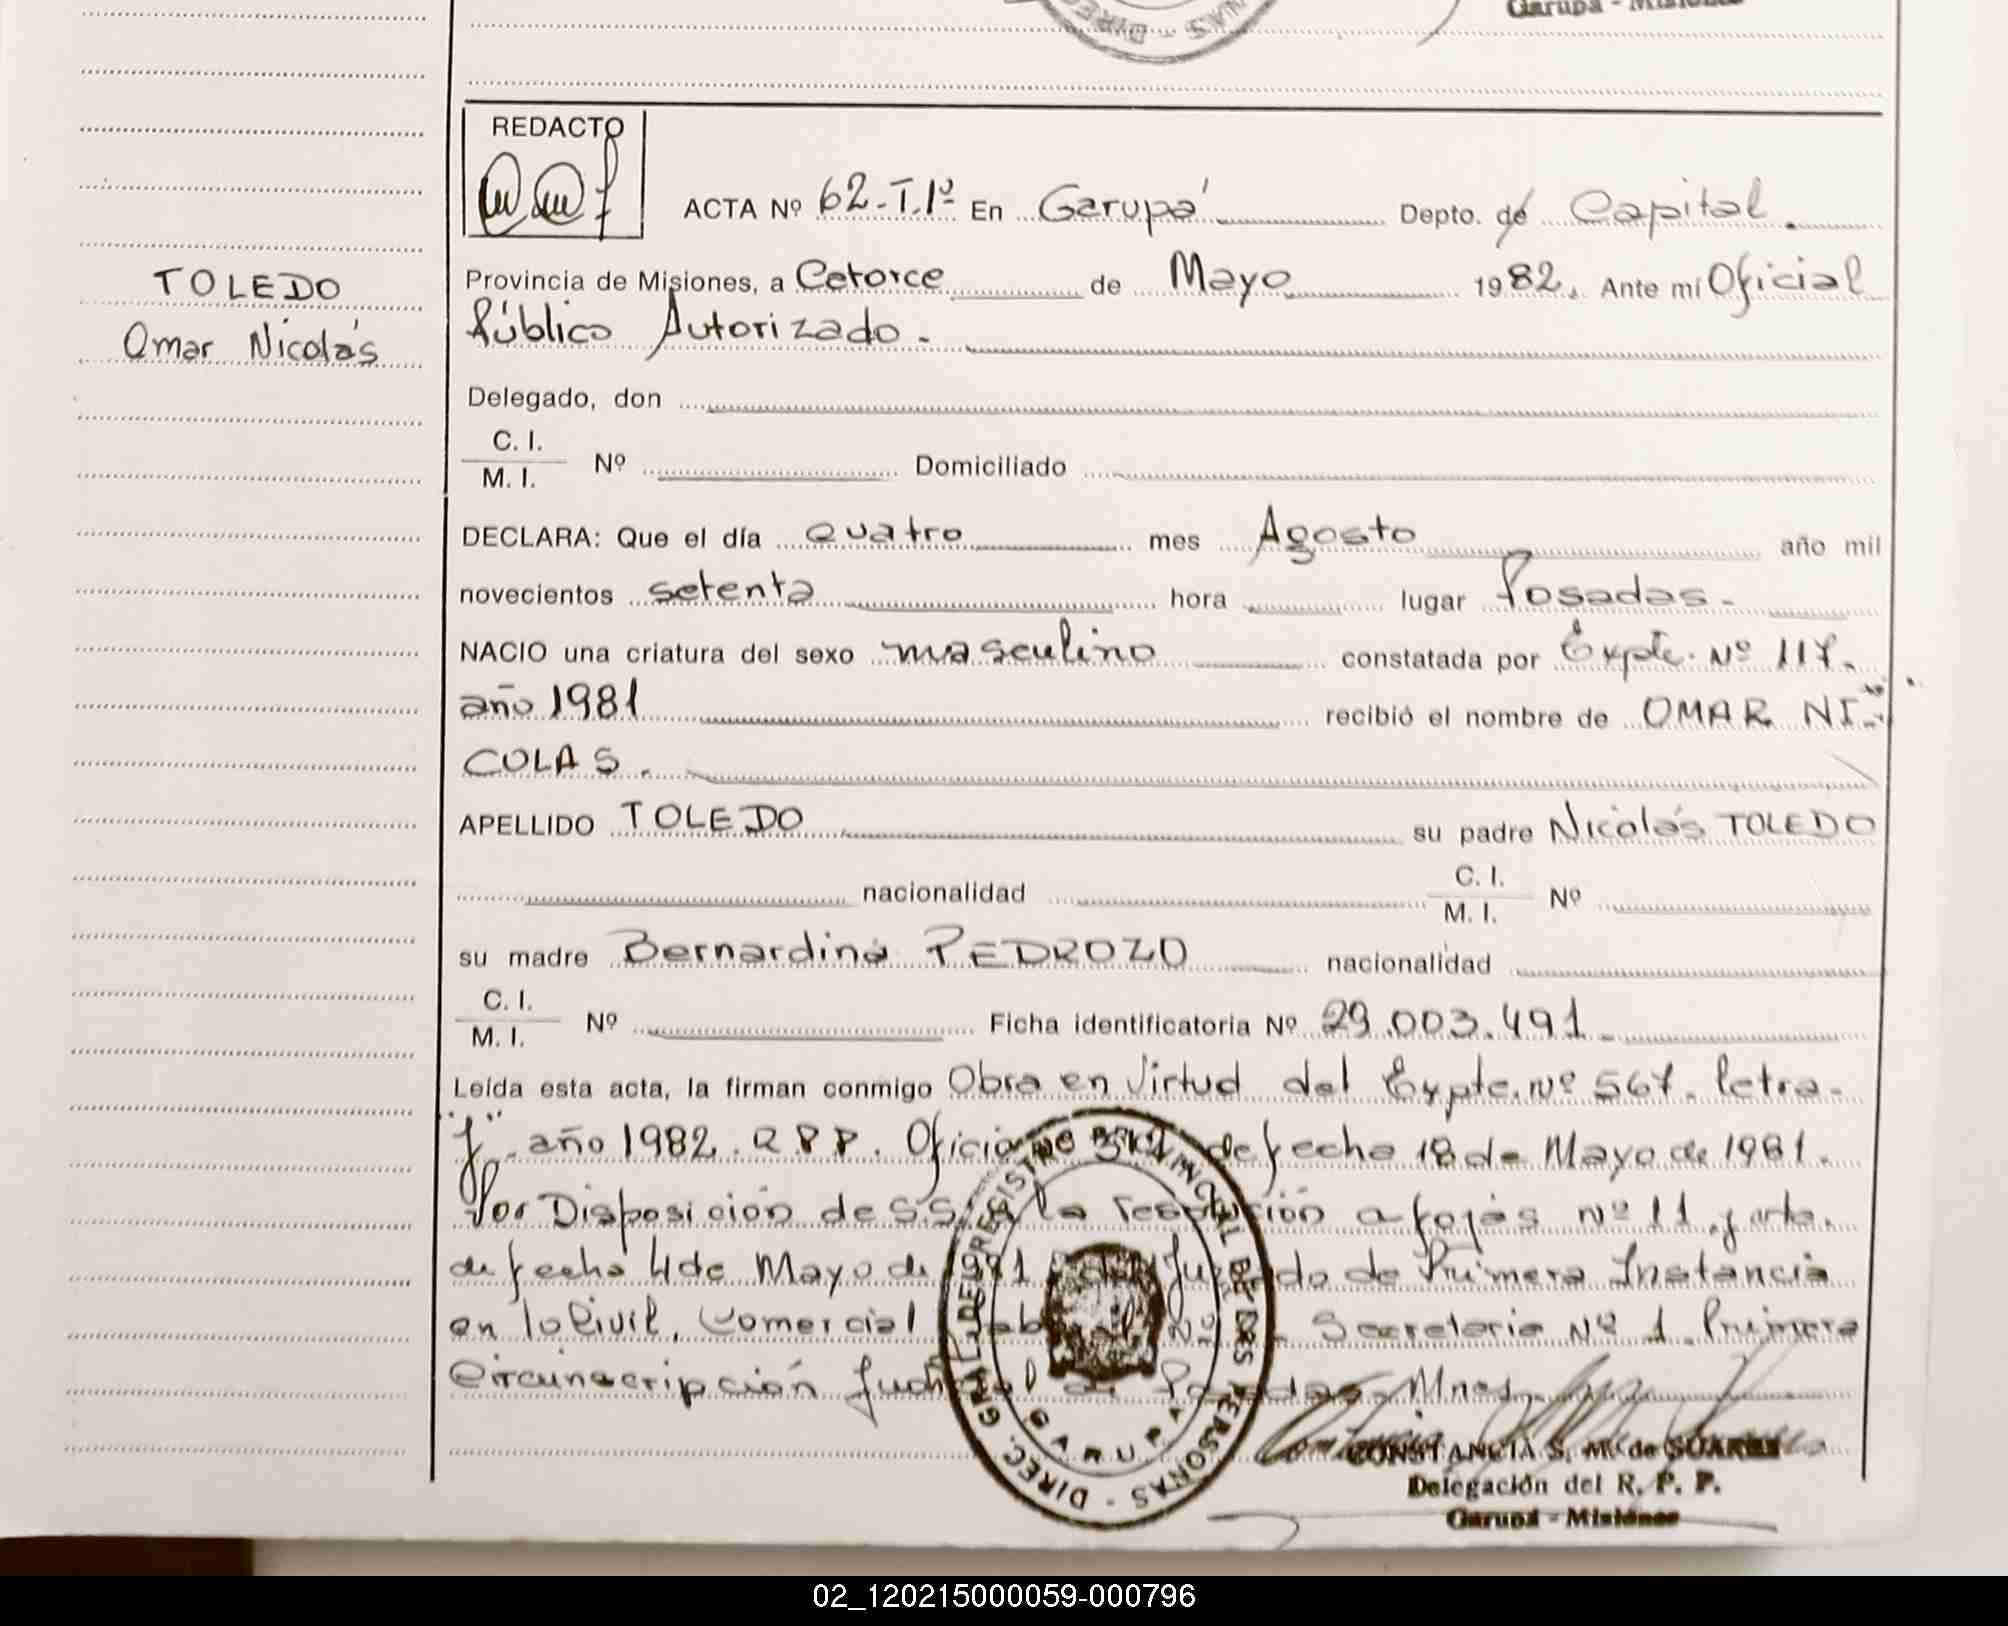 Garupá - Misiones
REDACTO
ACTA Nº 62-T.1º En Garupá Depto. de Capital.
TOLEDO
Omar Nicolás
Provincia de Misiones, a Catorce de Mayo 1982. Ante mí Oficial
Público Autorizado.
Delegado, don
C. I.
M. I. Nº Domiciliado
DECLARA: Que el día cuatro mes Agosto año mil
novecientos setenta hora lugar Posadas.
NACIO una criatura del sexo masculino constatada por Expte. Nº 117.
año 1981 recibió el nombre de OMAR NI-
COLAS.
APELLIDO TOLEDO su padre Nicolás TOLEDO
nacionalidad C. I.
M. I. Nº
su madre Bernardina PEDROZO nacionalidad
C. I.
M. I. Nº Ficha identificatoria Nº 29.003.491
Leída esta acta, la firman conmigo Obra en Virtud del Expte. Nº 567. letra.
"J". año 1982. R P P. Oficio Nº de fecha 18 de Mayo de 1981.
Por Disposición de S.S. la resolución a fojas Nº 11 y vta.
de fecha 4 de Mayo de 1981 Juzgado de Primera Instancia
en lo Civil, Comercial Nº Secretaria Nº 1 Primera
Circunscripción Judicial de Posadas. Mnes.
DIREC. GRAL. DEL REGISTRO PROVINCIAL DE LAS PERSONAS
GARUPA
CONSTANCIA S. M. de SUAREZ
Delegación del R. P. P.
Garupá - Misiones
02_120215000059-000796